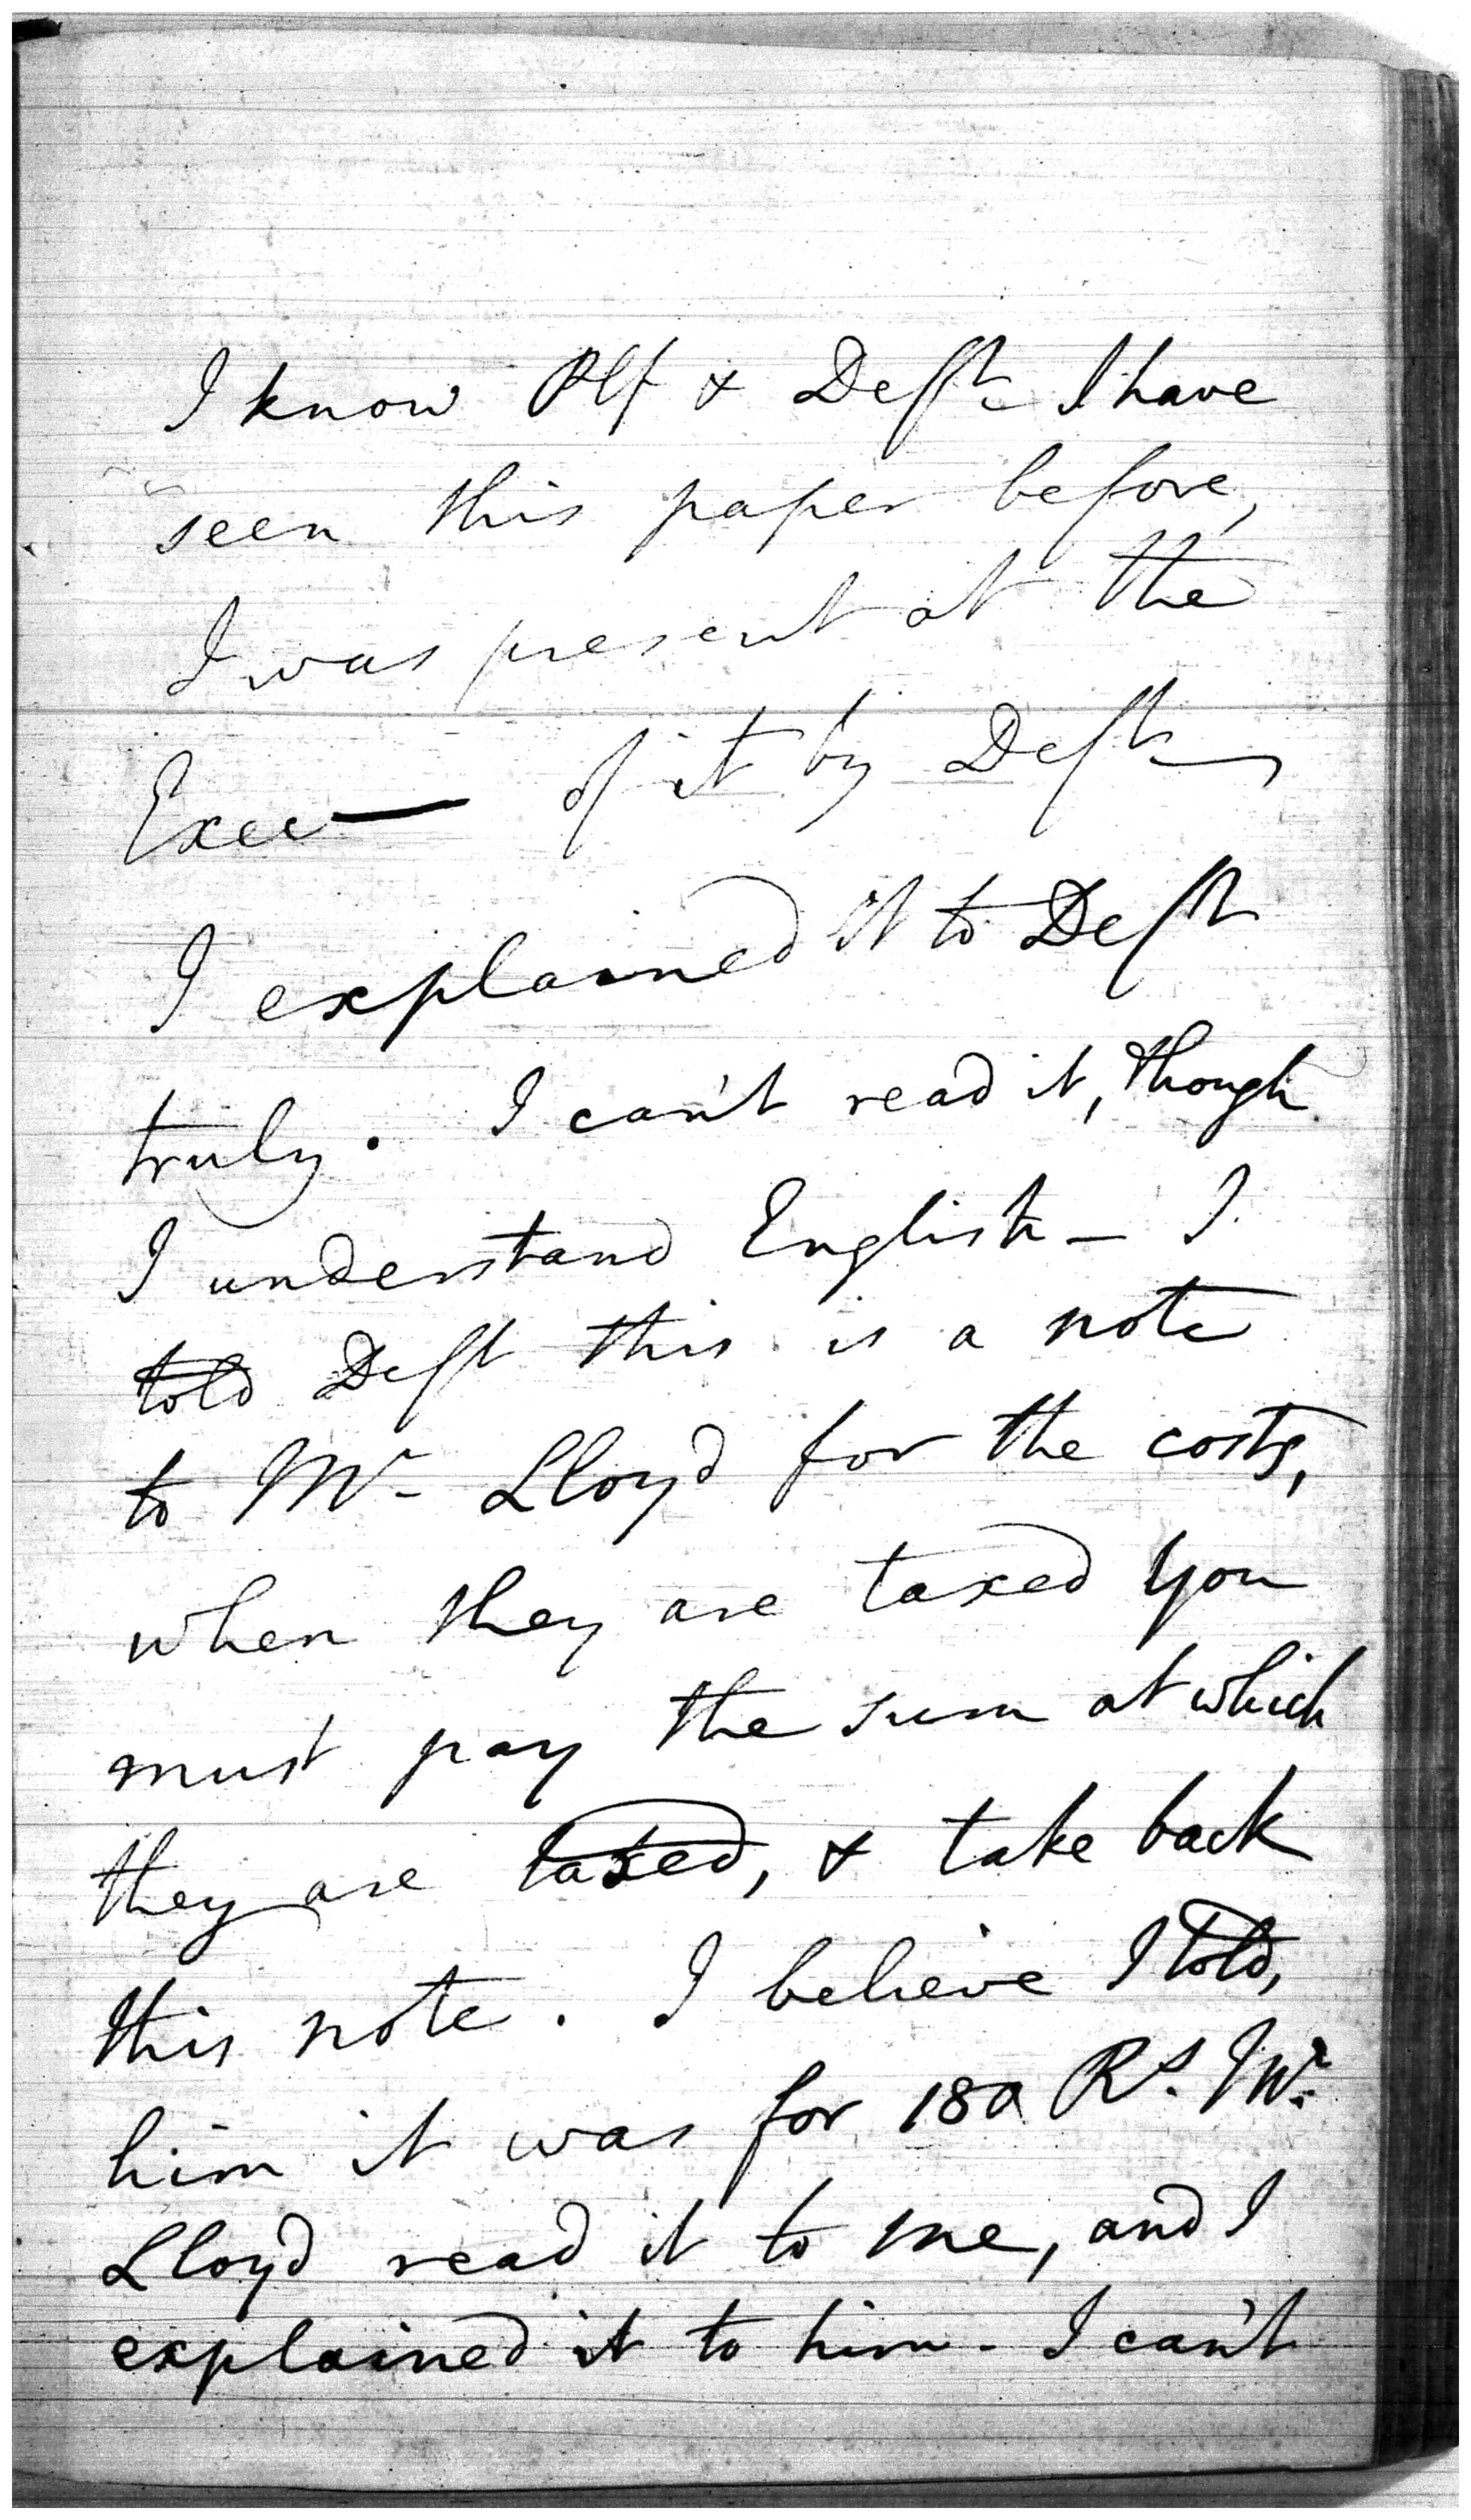 I know Plf & Deft I have
seen this paper before,
I was present at the
Exec— of it by Deft
I explained it to Deft
truly. I can't read it, though
I understand English – I
told Deft this is a note
to Mr Lloyd for the costs,
when they are taxed you
must pay the sum at which
they are taxed, & take back
this note. I believe I told,
him it was for 180 Rs. Mr.
Lloyd read it to me, and I
explained it to him – I can't